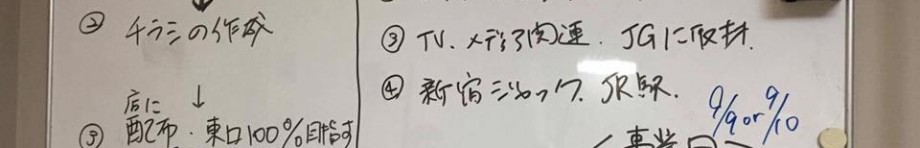 ② チラシの作成
店に ↓
③ 配布・東口100%目指す
③ TV、メディア関連、JGに取材.
④ 新宿ジャック、JR駅.
9/9 or 9/10